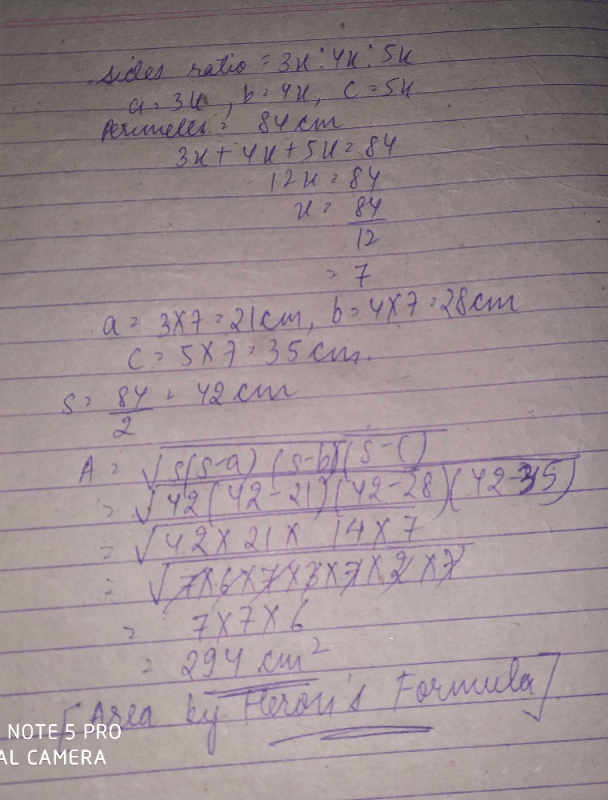 sides ratio = 3x : 4x : 5x
a = 3x, b = 4x, c = 5x
Perimeter = 84 cm
3x + 4x + 5x = 84
12x = 84
x = 84/12
= 7
a = 3×7 = 21cm, b = 4×7 = 28cm
c = 5×7 = 35 cm.
s = 84/2 = 42 cm
A = √s(s-a) (s-b)(s-c)
= √42(42-21)(42-28)(42-35)
= √42×21× 14×7
= √7×6×7×3×7×2×7
= 7×7×6
= 294 cm²
[Area by Heron's Formula]
NOTE 5 PRO
AL CAMERA